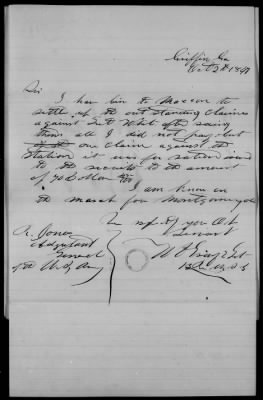 Griffin Ga
Oct 2d 1847
Sir
I hav bin to Maccon to
settle up the out standing Claimes
against Lut but after seeing
them all I did not pay but
one Claime against the
Station it was for rations
to the recruits to the amount
of 70 Dollars
I am know on
the march for Montgomery
your Obt
Servant
R. Jones
Adjutant
Generel
of the U. S. Army